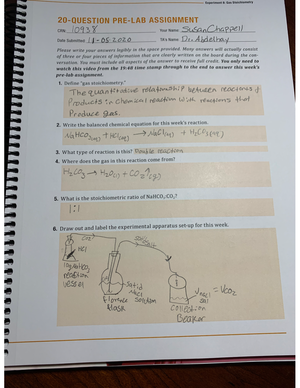 Experiment 6: Gas Stoichiometry
20-QUESTION PRE-LAB ASSIGNMENT
CRN: 10938 Your Name: Susan Chappell
Date Submitted: 10-05-2020 TA's Name: Dr. Abdelhay
Please write your answers legibly in the space provided. Many answers will actually consist
of three or four pieces of information that are clearly written on the board during the con-
versation. You must include all aspects of the answer to receive full credit. You only need to
watch this video from the 19:46 time stamp through to the end to answer this week's
pre-lab assignment.
1. Define "gas stoichiometry."
The quantitative relationship between reactions &
Products in chemical reaction with reactions that
Produce gas.
2. Write the balanced chemical equation for this week's reaction.
NaHCO3 (aq) + HCl (aq) → NaCl (aq) + H2CO3 (aq)
3. What type of reaction is this? Double reaction
4. Where does the gas in this reaction come from?
H2CO3 → H2O (l) + CO2 ↑ (g)
5. What is the stoichiometric ratio of NaHCO3:CO2?
1:1
6. Draw out and label the experimental apparatus set-up for this week.
CO2
HCl
NaHCO3
reaction
vessel
Florence
flask
Satd
NaCl
solution
VNaCl
sol
= VCO2
Collection
Beaker